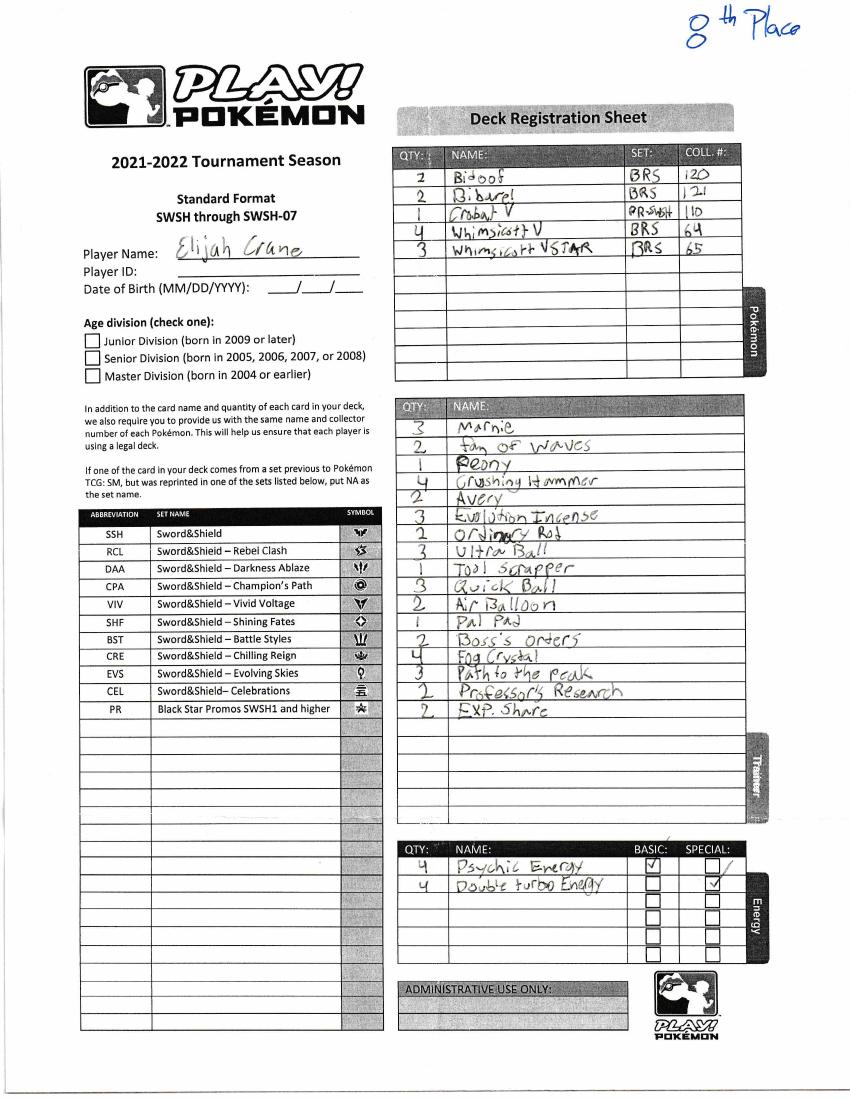 8th Place
PLAY! POKÉMON
Deck Registration Sheet
2021-2022 Tournament Season
Standard Format
SWSH through SWSH-07
Player Name: Elijah Crane
Player ID:
Date of Birth (MM/DD/YYYY): ___/___/___
Age division (check one):
Junior Division (born in 2009 or later)
Senior Division (born in 2005, 2006, 2007, or 2008)
Master Division (born in 2004 or earlier)
In addition to the card name and quantity of each card in your deck,
we also require you to provide us with the same name and collector
number of each Pokémon. This will help us ensure that each player is
using a legal deck.
If one of the card in your deck comes from a set previous to Pokémon
TCG: SM, but was reprinted in one of the sets listed below, put NA as
the set name.
ABBREVIATION SET NAME SYMBOL
SSH Sword&Shield
RCL Sword&Shield – Rebel Clash
DAA Sword&Shield – Darkness Ablaze
CPA Sword&Shield – Champion's Path
VIV Sword&Shield – Vivid Voltage
SHF Sword&Shield – Shining Fates
BST Sword&Shield – Battle Styles
CRE Sword&Shield – Chilling Reign
EVS Sword&Shield – Evolving Skies
CEL Sword&Shield– Celebrations
PR Black Star Promos SWSH1 and higher
QTY: NAME: SET: COLL. #:
2 Bidoof BRS 120
2 Bibarel BRS 121
1 Crobat V PR-SWSH 110
4 Whimsicott V BRS 64
3 Whimsicott VSTAR BRS 65
Pokémon
QTY: NAME:
3 Marnie
2 fan of waves
1 Peony
4 Crushing Hammer
2 Avery
3 Evolution Incense
2 Ordinary Rod
3 Ultra Ball
1 Tool Scrapper
3 Quick Ball
2 Air Balloon
1 Pal Pad
2 Boss's Orders
4 Fog Crystal
3 Path to the peak
2 Professor's Research
2 EXP. Share
Trainer
QTY: NAME: BASIC: SPECIAL:
4 Psychic Energy ✓
4 Double turbo Energy ✓
Energy
ADMINISTRATIVE USE ONLY:
PLAY! POKÉMON